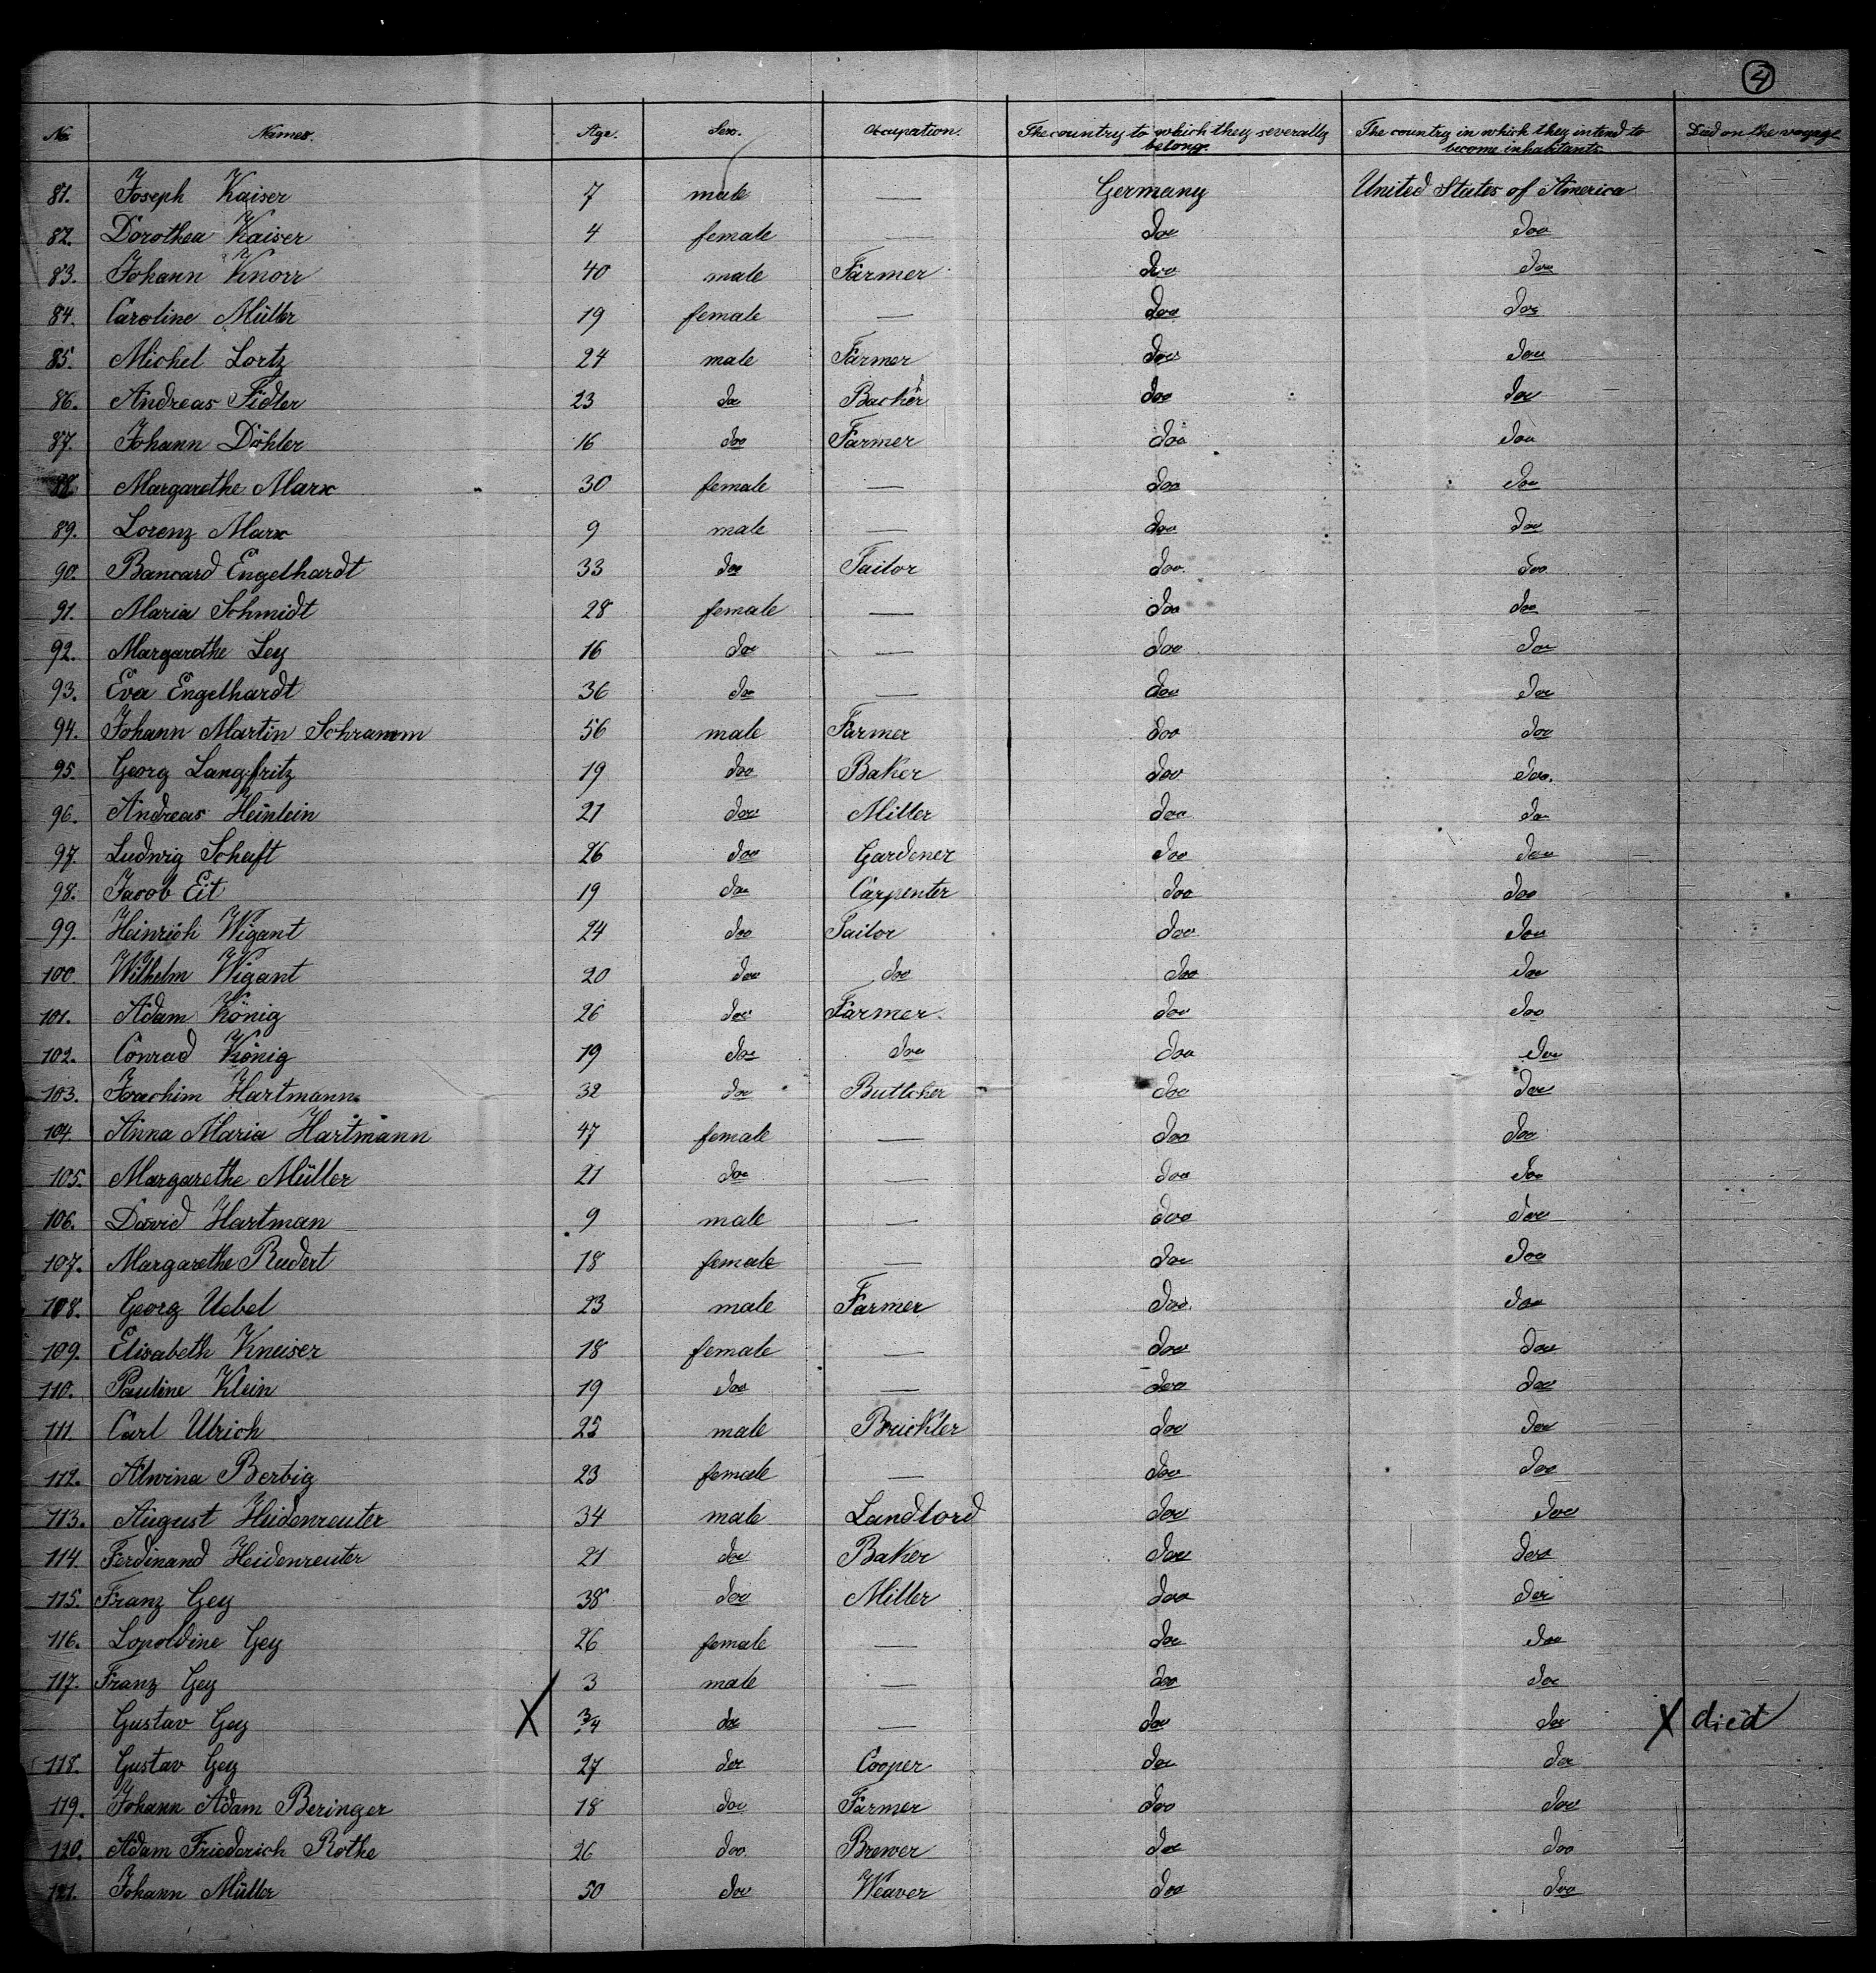 4
No. Names. Age. Sex. Occupation. The country to which they severally belong. The country in which they intend to become inhabitants. Died on the voyage
81. Joseph Kaiser 7 male — Germany United States of America
82. Dorothea Kaiser 4 female — doo doo
83. Johann Knorr 40 male Farmer doo doo
84. Caroline Müller 19 female — doo doo
85. Michel Lortz 24 male Farmer doo doo
86. Andreas Fidler 23 doo Backer doo doo
87. Johann Döhler 16 doo Farmer doo doo
88. Margarethe Marx 30 female — doo doo
89. Lorenz Marx 9 male — doo doo
90. Bancard Engelhardt 33 doo Tailor doo doo
91. Maria Schmidt 28 female — doo doo
92. Margarethe Ley 16 doo — doo doo
93. Eva Engelhardt 36 doo — doo doo
94. Johann Martin Schramm 56 male Farmer doo doo
95. Georg Langfritz 19 doo Baker doo doo
96. Andreas Heinlein 21 doo Miller doo doo
97. Ludwig Scheift 26 doo Gardener doo doo
98. Jacob Eit 19 doo Carpenter doo doo
99. Heinrich Wigant 24 doo Tailor doo doo
100. Wilhelm Wigant 20 doo doo doo doo
101. Adam König 26 doo Farmer doo doo
102. Conrad König 19 doo doo doo doo
103. Joachim Hartmann 32 doo Buttcher doo doo
104. Anna Maria Hartmann 47 female — doo doo
105. Margarethe Müller 21 doo — doo doo
106. David Hartman 9 male — doo doo
107. Margarethe Rudert 18 female — doo doo
108. Georg Uebel 23 male Farmer doo doo
109. Elisabeth Kneiser 18 female — doo doo
110. Pauline Klein 19 doo — doo doo
111. Carl Ulrich 25 male Brickler doo doo
112. Alwina Berbig 23 female — doo doo
113. August Heidenreuter 34 male Landlord doo doo
114. Ferdinand Heidenreuter 21 doo Baker doo doo
115. Franz Gey 38 doo Miller doo doo
116. Lopoldine Gey 26 female — doo doo
117. Franz Gey 3 male — doo doo
Gustav Gey X 3/4 doo — doo doo X died
118. Gustav Gey 27 doo Cooper doo doo
119. Johann Adam Beringer 18 doo Farmer doo doo
120. Adam Friederich Rothe 26 doo Brewer doo doo
121. Johann Müller 50 doo Weaver doo doo